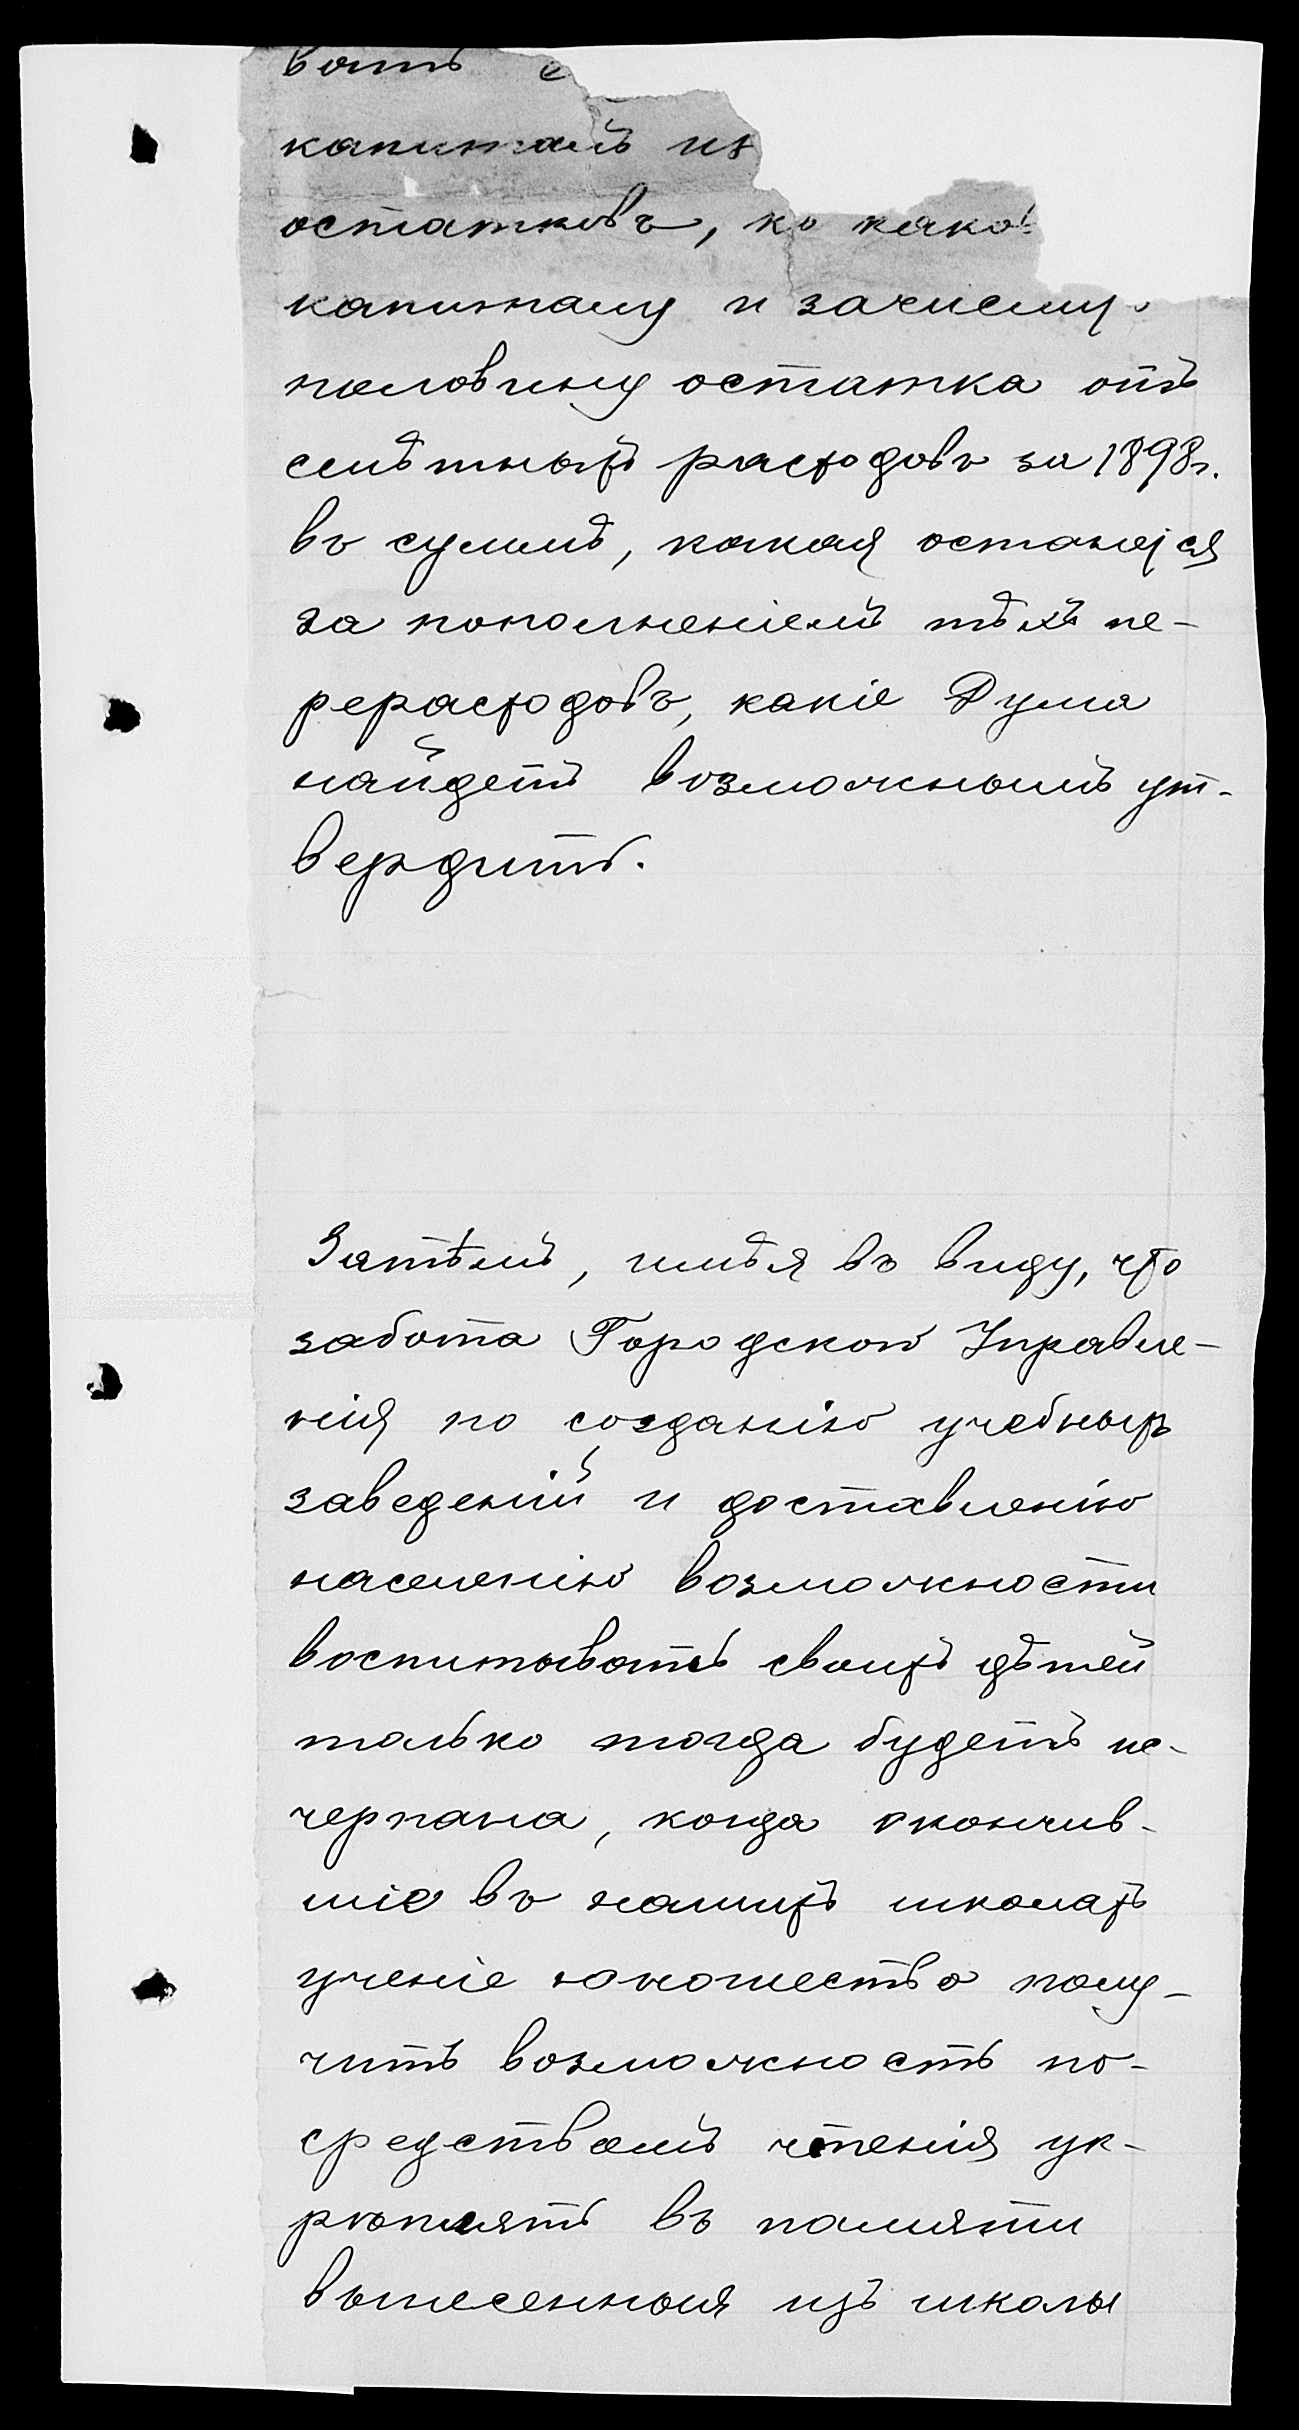 вать с
капиталъ из
остатковъ, ко како
капиталу и зачислить
половину остатка отъ
смѣтныхъ расходовъ за 1898 г.
въ суммѣ, какая останется
за пополненіемъ тѣхъ пе-
рерасходовъ, какіе Дума
найдетъ возможнымъ ут-
вердить.
Затѣмъ, имѣя въ виду, что
забота Городской Управле-
нія по созданію учебныхъ
заведеній и доставленію
населенію возможности
воспитывать своихъ дѣтей
только тогда будетъ ис-
черпана, когда окончив-
шіе въ нашихъ школахъ
ученіе юношество полу-
читъ возможность по-
средствомъ чтенія ук-
рѣплять въ памяти
вынесенныя изъ школы